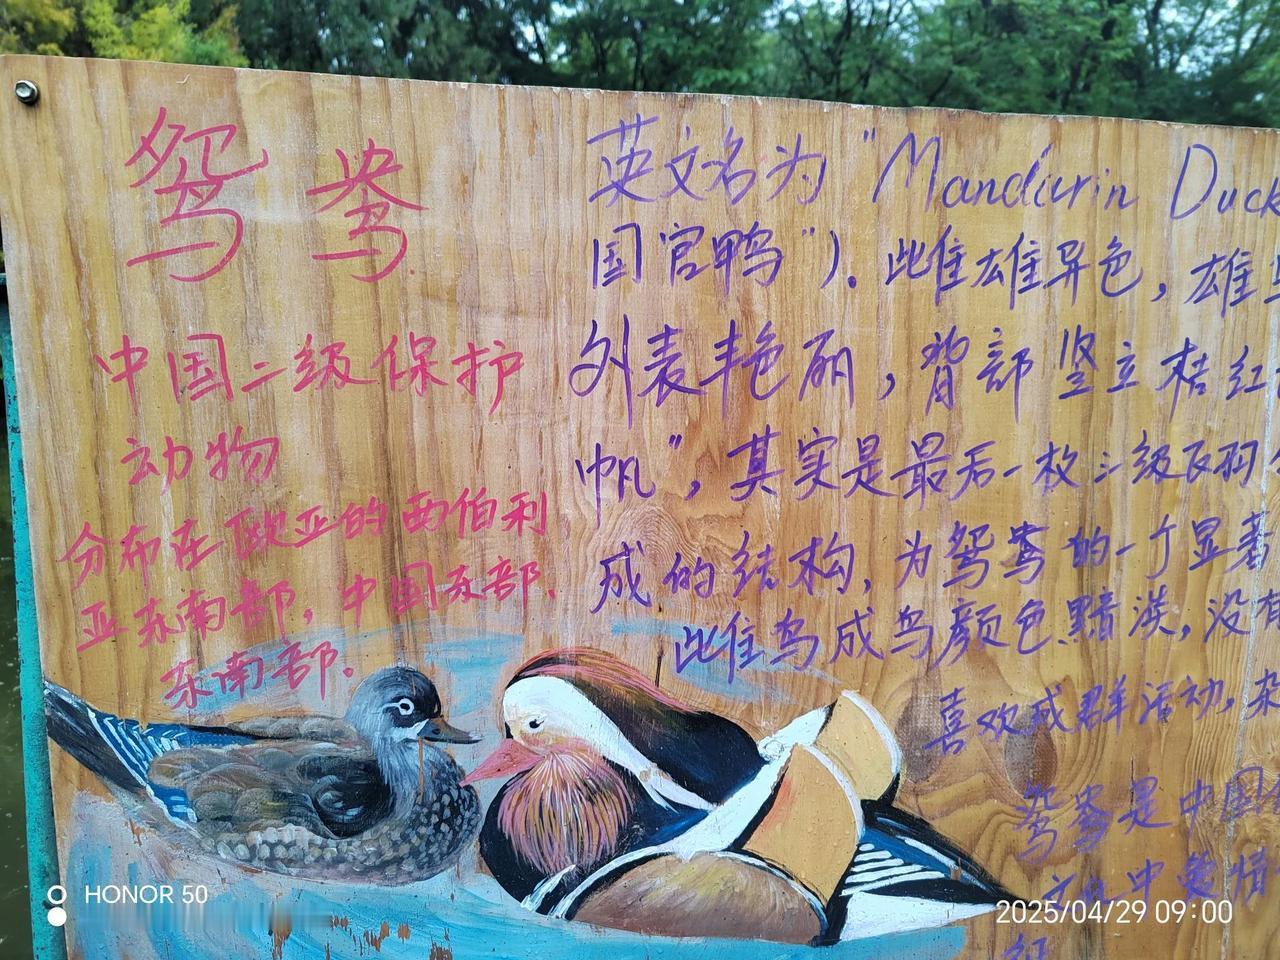 鸳鸯
中国二级保护
动物
分布在欧亚的西伯利
亚东南部，中国东部、
东南部。
英文名为"Mandarin Duck
国官鸭")。此雌雄异色，雄
外表丰色丽，背部竖立桔红
帆"，其实是最后一枚三级飞羽
成的结构，为鸳鸯的一个显著
此雌鸟成鸟颜色黯淡，没有
喜欢成群活动，杂
鸳鸯是中国
文化中爱情
HONOR 50
2025/04/29 09:00